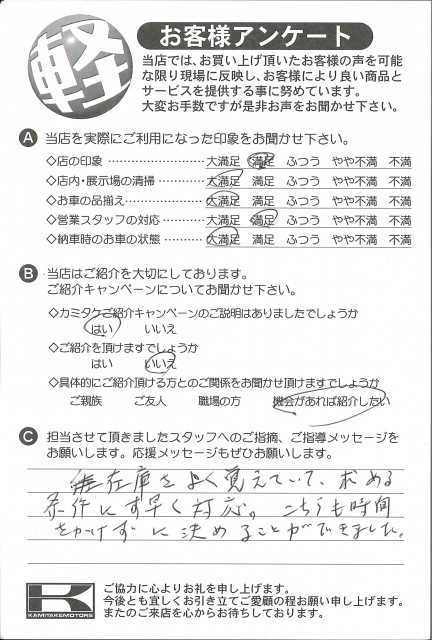 軽
お客様アンケート
当店では、お買い上げ頂いたお客様の声を可能
な限り現場に反映し、お客様により良い商品と
サービスを提供する事に努めています。
大変お手数ですが是非お声をお聞かせ下さい。
A 当店を実際にご利用になった印象をお聞かせ下さい。
◇店の印象 ……………………… 大満足 満足 ふつう やや不満 不満
◇店内・展示場の清掃 ………… 大満足 満足 ふつう やや不満 不満
◇お車の品揃え ………………… 大満足 満足 ふつう やや不満 不満
◇営業スタッフの対応 ………… 大満足 満足 ふつう やや不満 不満
◇納車時のお車の状態 ………… 大満足 満足 ふつう やや不満 不満
B 当店はご紹介を大切にしております。
ご紹介キャンペーンについてお聞かせ下さい。
◇カミタケご紹介キャンペーンのご説明はありましたでしょうか
はい いいえ
◇ご紹介を頂けますでしょうか
はい いいえ
◇具体的にご紹介頂ける方とのご関係をお聞かせ頂けますでしょうか
ご親族 ご友人 職場の方 機会があれば紹介したい
C 担当させて頂きましたスタッフへのご指摘、ご指導メッセージを
お願いします。応援メッセージもぜひお願いします。
在庫をよく覚えていて、求める
条件にす早く対応。こちらも時間
をかけずに決めることができました。
K
KAMITAKEMOTORS
ご協力に心よりお礼を申し上げます。
今後とも宜しくお引き立てご愛顧の程お願い申し上げます。
またのご来店を心からお待ちしております。